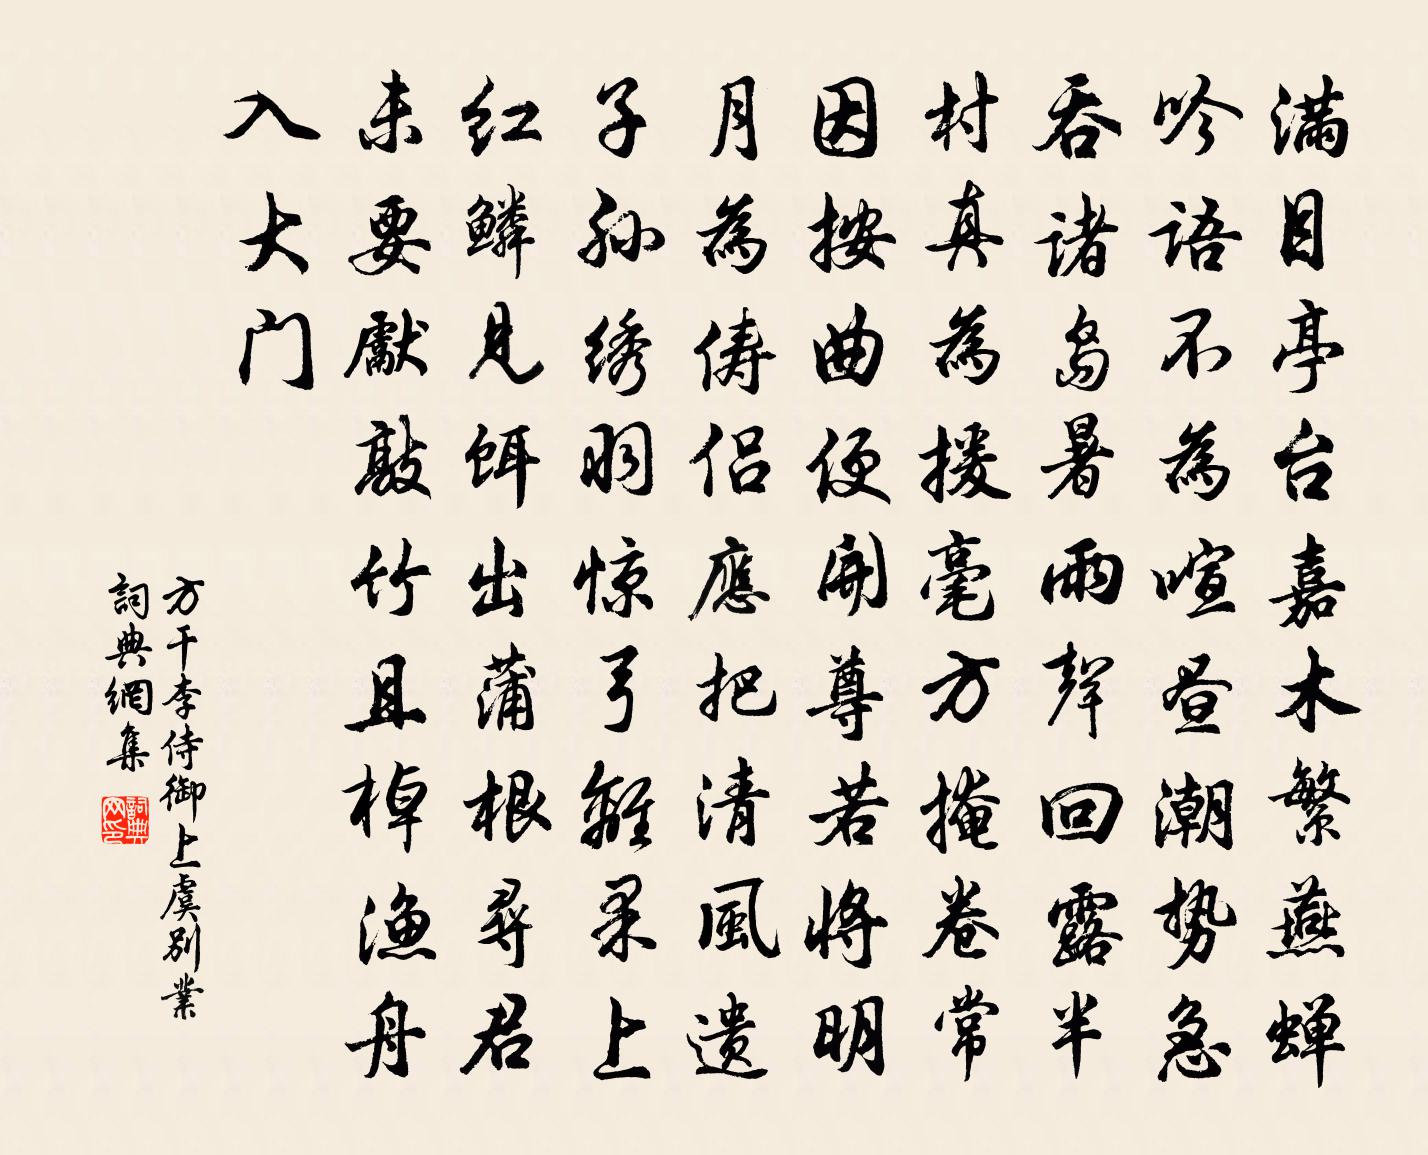 满目亭台嘉木繁燕蝉
吟語不為喧昼潮势急
吞诸島暑雨聲回露半
村真為援毫方掩卷常
因按曲便開尊若將明
月為俦侣應把清風遗
子孙绣羽惊弓離果上
红鳞見饵出蒲根尋君
未要獻敲竹且棹渔舟
入大门
方干李侍御上虞别業
詞典網集
詞典网印